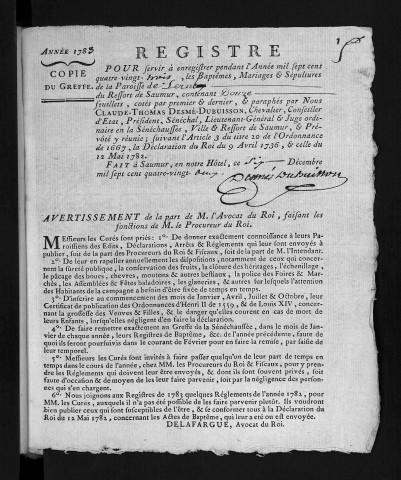 ANNÉE 1783
REGISTRE
COPIE
DU GREFFE.
POUR servir à enregistrer pendant l'Année mil sept cent
quatre-vingt-trois, les Baptêmes, Mariages & Sépultures
de la Paroisse de
du Ressort de Saumur, contenant Douze
feuillets, cotés par premier & dernier, & paraphés par Nous
CLAUDE-THOMAS DESMÉ-DUBUISSON, Chevalier, Conseiller
d'Etat, Président, Sénéchal, Lieutenant-Général & Juge ordi-
naire en la Sénéchaussée, Ville & Ressort de Saumur, & Pré-
vôté y réunie; suivant l'Article 3 du titre 20 de l'Ordonnance
de 1667, la Déclaration du Roi du 9 Avril 1736, & celle du
12 Mai 1782.
FAIT à Saumur, en notre Hôtel, ce Six Décembre
mil sept cent quatre-vingt-deux.
Desmé Dubuisson
AVERTISSEMENT de la part de M. l'Avocat du Roi, faisant les
fonctions de M. le Procureur du Roi.
MESSIEURS les Curés sont priés: 1º. De donner exactement connoissance à leurs Pa-
roissiens des Edits, Déclarations, Arrêts & Réglements qui leur sont envoyés à
publier, soit de la part des Procureurs du Roi & Fiscaux, soit de la part de M. l'Intendant.
2º. De leur en rappeller annuellement les dispositions, notamment de ceux qui concer-
nent la sûreté publique, la conservation des fruits, la clôture des héritages, l'échenillage,
le pacage des boucs, chevres, moutons & autres bestiaux, la police des Foires & Mar-
chés, les Assemblées & Fêtes baladoires, les glaneries, & autres sur lesquels l'attention
des Habitans de la campagne a besoin d'être fixée de temps en temps.
3º. D'inscrire au commencement des mois de Janvier, Avril, Juillet & Octobre, leur
Certificat de publication des Ordonnances d'Henri II de 1559, & de Louis XIV, concer-
nant la grossesse des Veuves & Filles, & le danger qu'elles courent en cas de mort de
leurs Enfants, lorsqu'elles négligent d'en faire la déclaration.
4º. De faire remettre exactement au Greffe de la Sénéchaussée, dans le mois de Jan-
vier de chaque année, leurs Registres de Baptême, &c. de l'année précédente, faute de
quoi ils seront poursuivis dans le courant de Février pour en faire la remise, par saisie de
leur temporel.
5º. Messieurs les Curés sont invités à faire passer quelqu'un de leur part de temps en
temps dans le cours de l'année, chez MM. les Procureurs du Roi & Fiscaux, pour y pren-
dre les Réglements qui doivent leur être envoyés, & dont ils sont souvent privés, soit
faute d'occasion & de moyen de les leur faire parvenir, soit par la négligence des person-
nes qui s'en chargent.
6º. Nous joignons aux Registres de 1783 quelques Réglements de l'année 1782, pour
MM. les Curés, auxquels il n'a pas été possible de les faire parvenir plutôt. Ils voudront
bien publier ceux qui sont susceptibles de l'être, & se conformer tous à la Déclaration du
Roi du 12 Mai 1782, concernant les Actes de Baptême, qui leur a été ou est envoyée.
DELAFARGUE, Avocat du Roi.